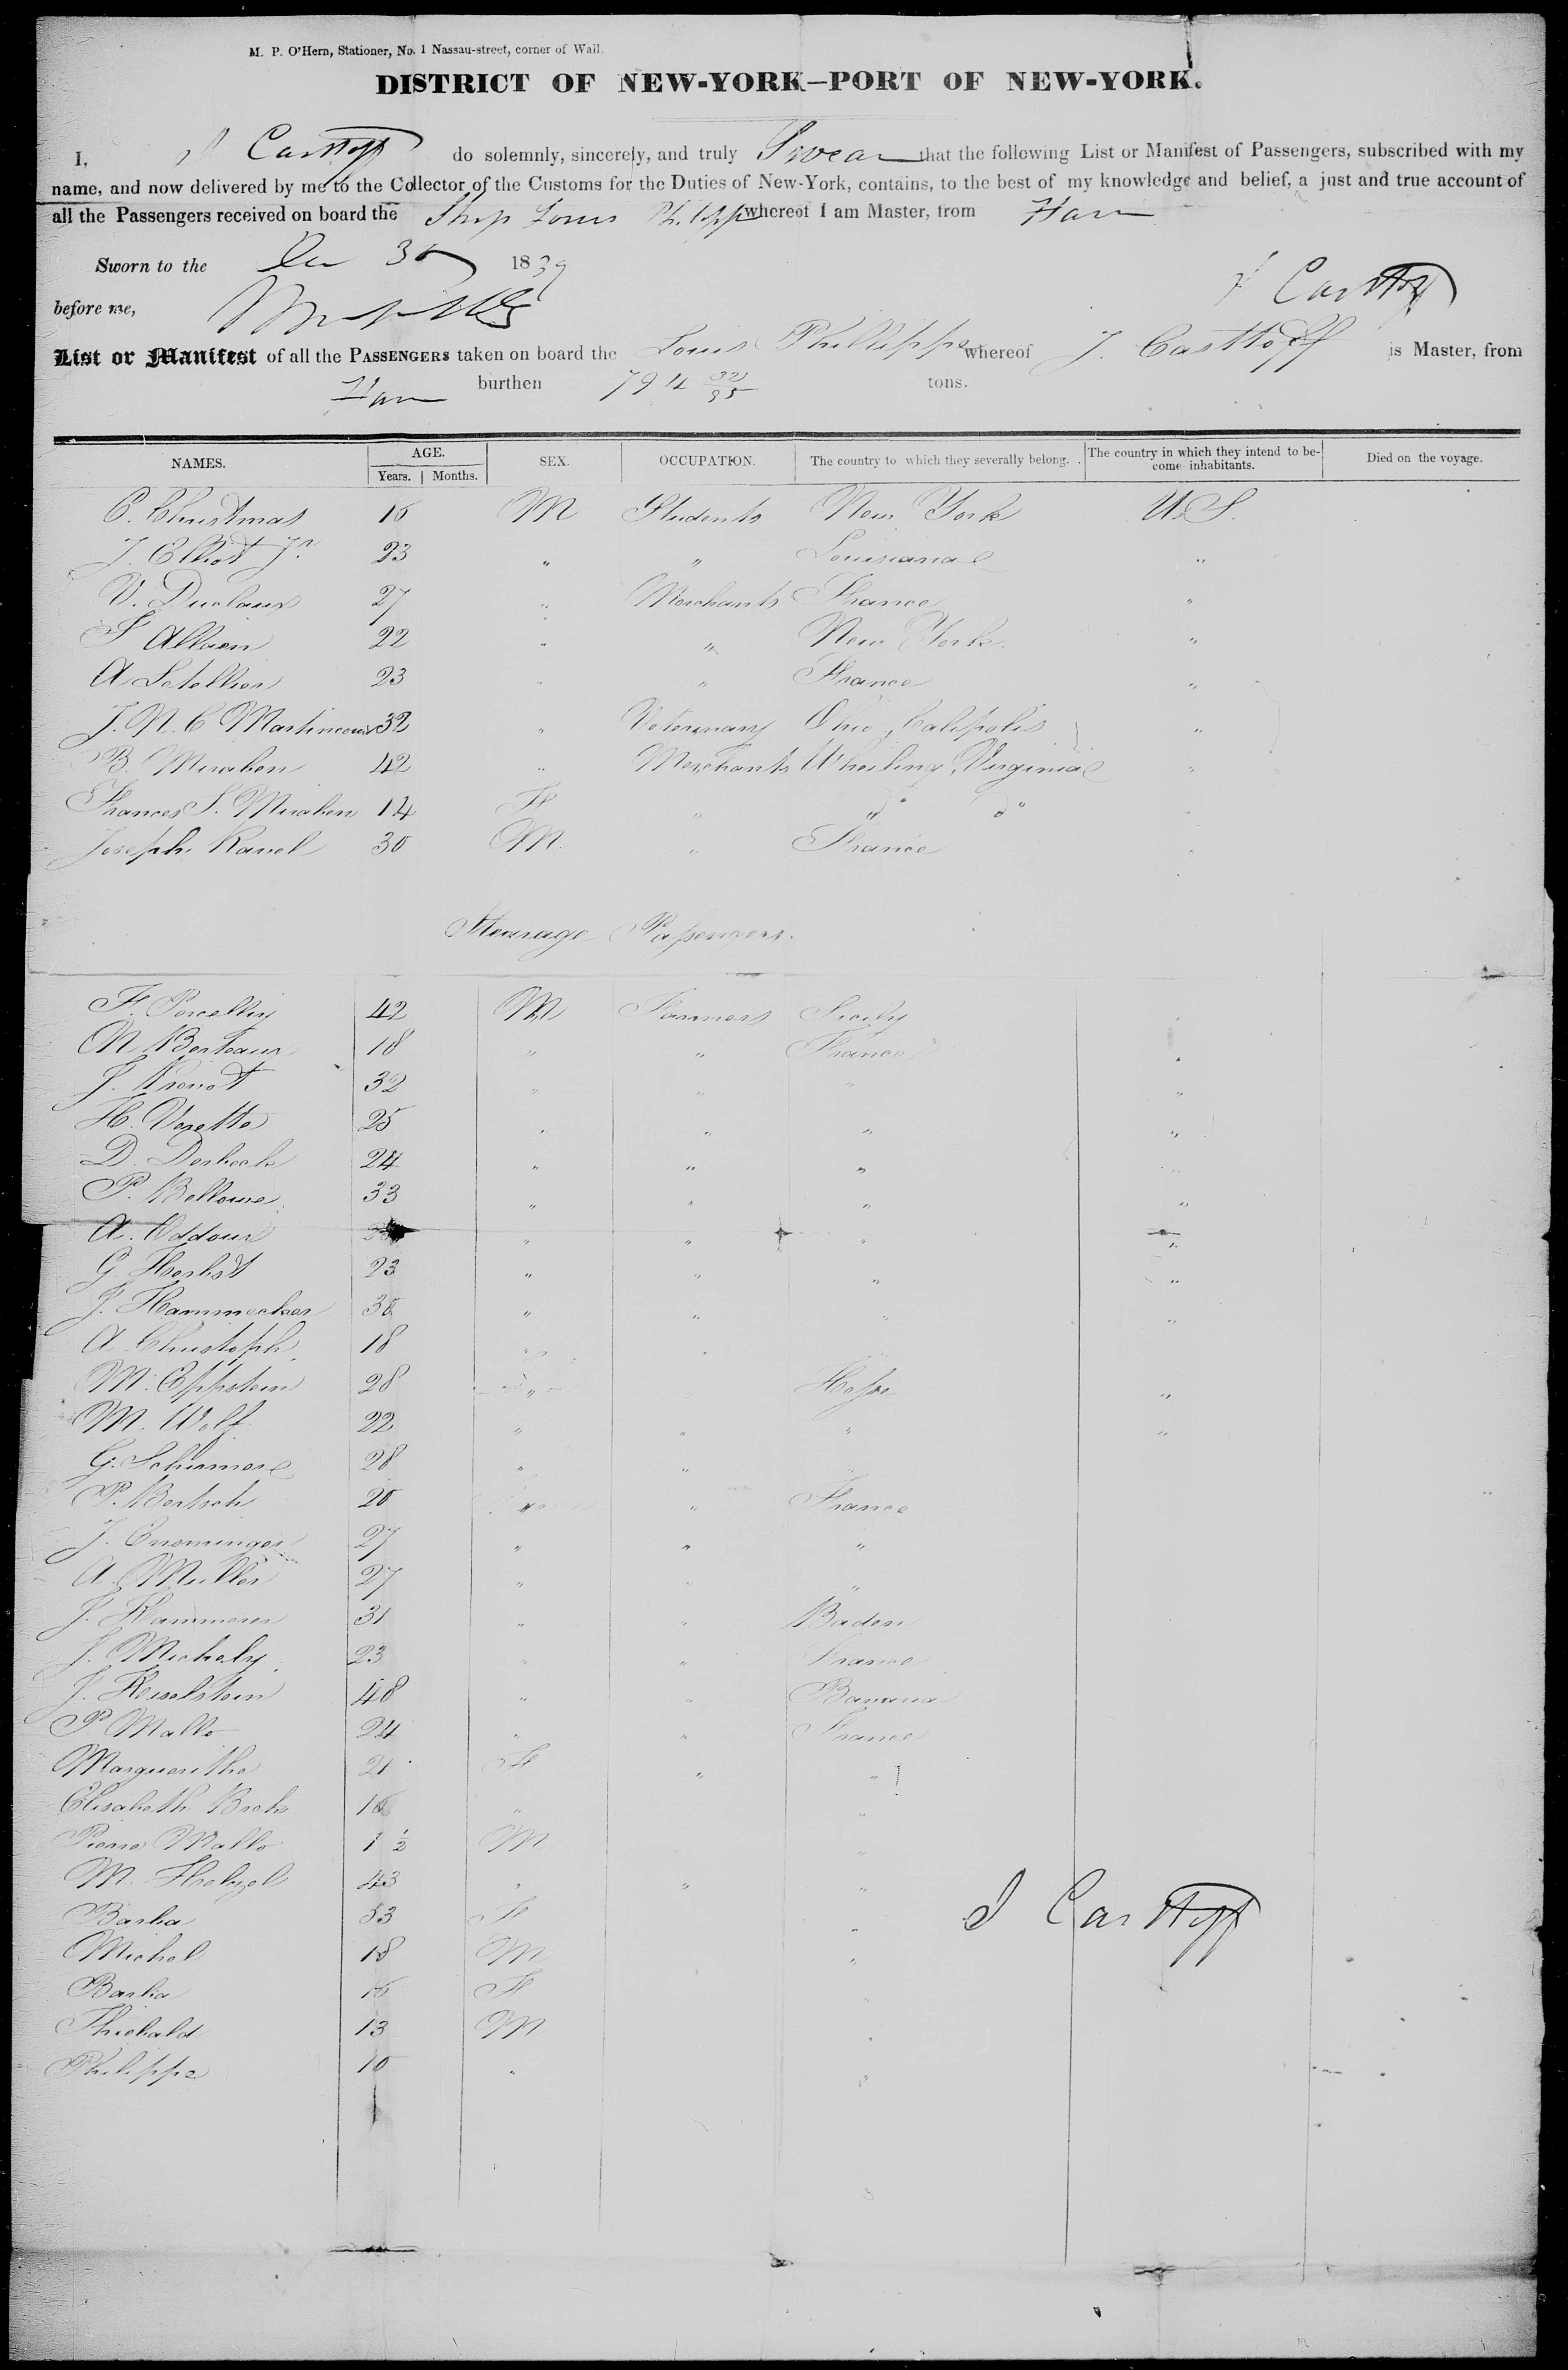 M. P. O'Hern, Stationer, No. 1 Nassau-street, corner of Wall.
DISTRICT OF NEW-YORK—PORT OF NEW-YORK.
I, J Casttoff do solemnly, sincerely, and truly Swear that the following List or Manifest of Passengers, subscribed with my
name, and now delivered by me to the Collector of the Customs for the Duties of New-York, contains, to the best of my knowledge and belief, a just and true account of
all the Passengers received on board the Ship Louis Philippe whereof I am Master, from Havre
Sworn to the Dec 30 1839
J Casttoff
before me,
List or Manifest of all the PASSENGERS taken on board the Louis Phillippe whereof J. Casttoff is Master, from
Havre burthen 794 32/95 tons.
NAMES. AGE. Years. Months. SEX. OCCUPATION. The country to which they severally belong. The country in which they intend to become inhabitants. Died on the voyage.
C. Christmas 15 M Students New York U.S.
J. Elliot Jr. 23 " " Louisiana "
V. Duclaux 27 " Merchants France "
22 " " New York "
A Letellier 23 " " France "
J. N. C Martincourt 32 " Veterinary Ohio, Galipolis "
B. Miraben 42 " Merchants Wheeling, Virginia "
Frances S. Miraben 14 F " do do "
Joseph Ravel 30 M " France "
Stearage Passengers.
F. Porcelly 42 M Farmers Sicily "
N. Berteaux 18 " " France "
J. Prevot 32 " " " "
H. Vogette 25 " " " "
D. 24 " " " "
P. Bellowe 33 " " " "
A. Oddoux " " " "
G Herbst 23 " " " "
J. Hammacker 30 " " " "
A Christoph 18 " "
M. Eppstein 28 " Hesse "
M. Wolf 22 " " " "
G. Schirmere 28 " " "
P. Bertsch 20 " " France
J. Ensminger 27 " " "
A Muller 27 " " "
J. Kammerer 31 " " Baden
J. Michely 23 " " France
J. Keiselstein 48 " " Bavaria
P Mallo 24 " " France
Marguerithe 21 F " "
Elisabeth Brek 16 " "
Pierre Mallo 1 1/2 M "
M. 43 " " "
J Casttoff
Barba 33 F "
Michel 18 M "
Barba 15 F "
Thiebald 13 M "
Philippe 10 " "